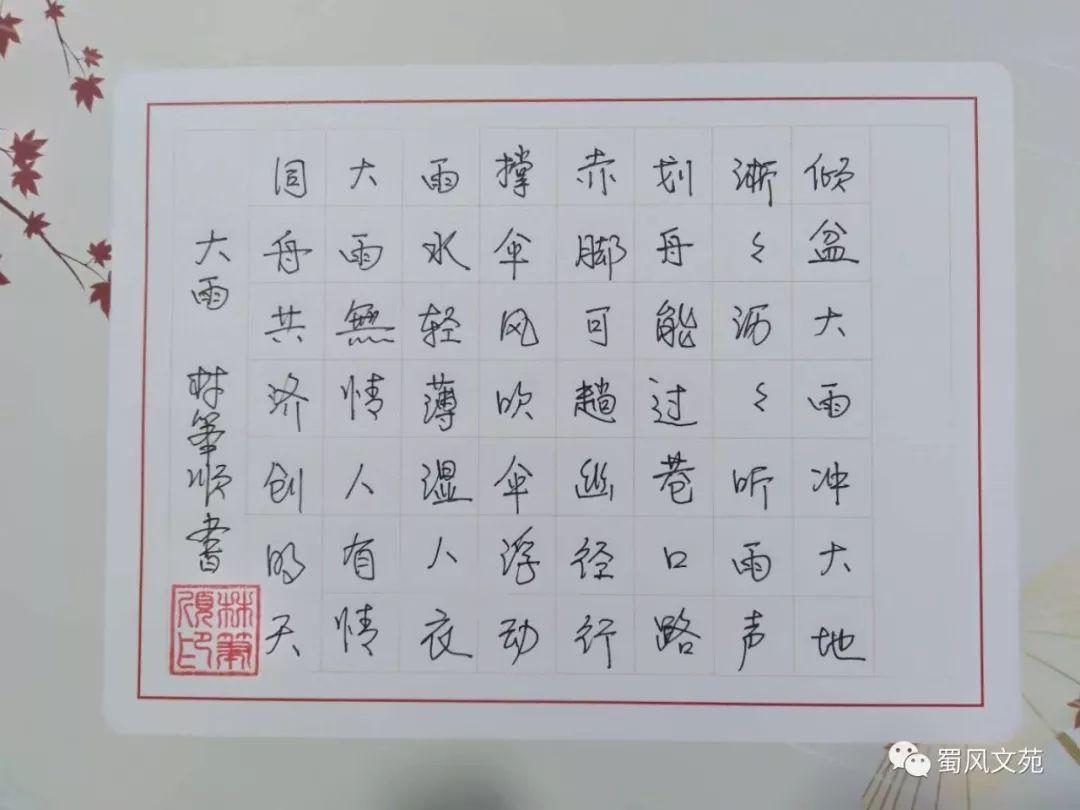 倾盆大雨冲大地
淅〻沥〻听雨声
划舟能过巷口路
赤脚可趟幽径行
撑伞风吹伞浮动
雨水轻薄湿人衣
大雨無情人有情
同舟共济创明天
大雨 林笔顺書
林笔顺印
蜀风文苑